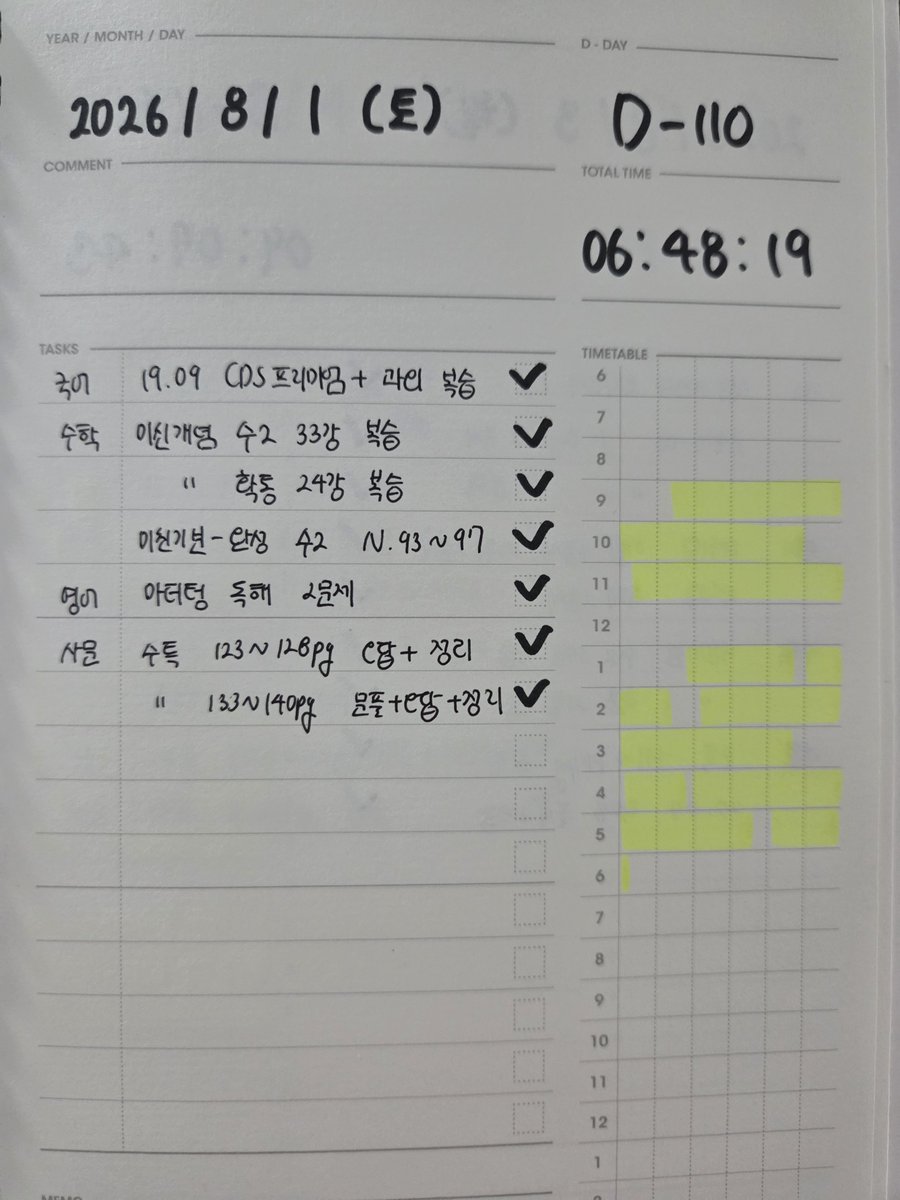 YEAR / MONTH / DAY
2026 / 8 / 1 (토)
D - DAY
D-110
COMMENT
TOTAL TIME
06:48:19
TASKS
국어 19.09 CDS프리마임 + 과인 복습
수학 이신개념 수2 33강 복습
" 확통 24강 복습
미친기분-완성 수2 N.93~97
영어 아터텅 독해 2문제
사문 수특 123~128pg e답+ 정리
" 133~140pg 문풀+e답+정리
TIMETABLE
6
7
8
9
10
11
12
1
2
3
4
5
6
7
8
9
10
11
12
1
2
MEMO